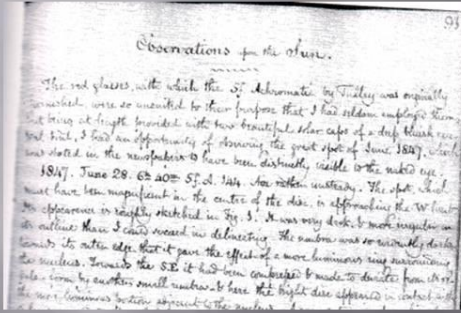 93
Observations upon the Sun.
The red glasses, with which the 5f. Achromatic by Tulley was originally
furnished, were so unsuited to their purpose that I had seldom employed them,
but being at length provided with two beautiful solar caps of a deep bluish
I had an opportunity of observing the great spot of June 1847, which
was stated in the newspapers to have been distinctly visible to the naked eye.
1847. June 28. 6h 40m 5f. A. 144. Air rather unsteady. The spot, which
must have been magnificent in the centre of the disc, is approaching the W. limb
Its appearance is roughly sketched in Fig. 1. It was very dark, & more irregular in
its outline than I could succeed in delineating. The umbra was so evidently darker
towards its outer edge that it gave the effect of a more luminous ring surrounding
the nucleus. Towards the S.E. it had been compressed & made to deviate from its
form by another small umbra & here the bright disc appeared in contact with
the more luminous portion adjacent to the nucleus